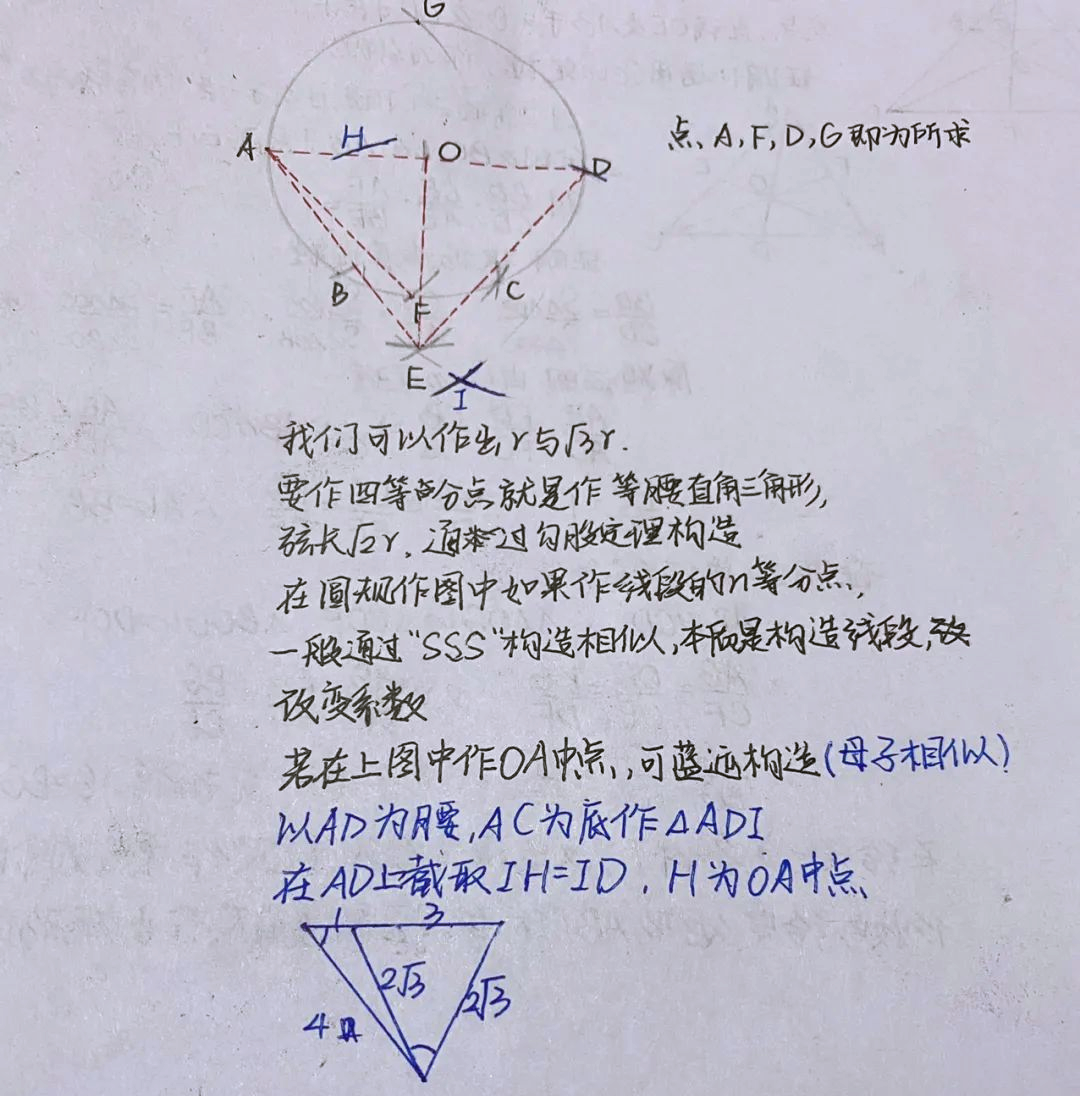 G
A H O D
点 A,F,D,G即为所求
B F C
E
I
我们可以作出r与√3r.
要作四等分点就是作等腰直角三角形,
弦长√2r,通过勾股定理构造
在圆规作图中如果作线段的n等分点,
一般通过“SSS”构造相似,本质是构造线段,
改变系数
若在上图中作OA中点,可构造(母子相似)
以AD为腰,AC为底作△ADI
在AD上截取IH=ID.H为OA中点
1 3
2√3 2√3
4